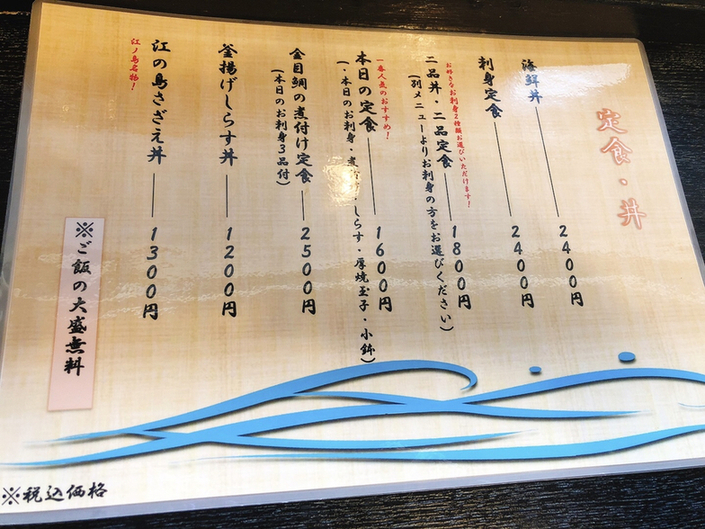 定食・丼
海鮮丼 2400円
刺身定食 2400円
お好きなお刺身2種類お選びいただけます!
二品丼・二品定食 1800円
(別メニューよりお刺身の方をお選びください)
一番人気のおすすめ!
本日の定食 1600円
(・本日のお刺身・煮付・しらす・厚焼玉子・小鉢)
金目鯛の煮付け定食 2500円
(本日のお刺身3品付)
釜揚げしらす丼 1200円
江の島さざえ丼 1300円
江ノ島名物!
※ご飯の大盛無料
※税込価格